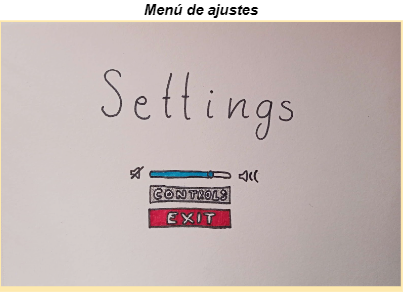 Menú de ajustes
Settings
CONTROLS
EXIT